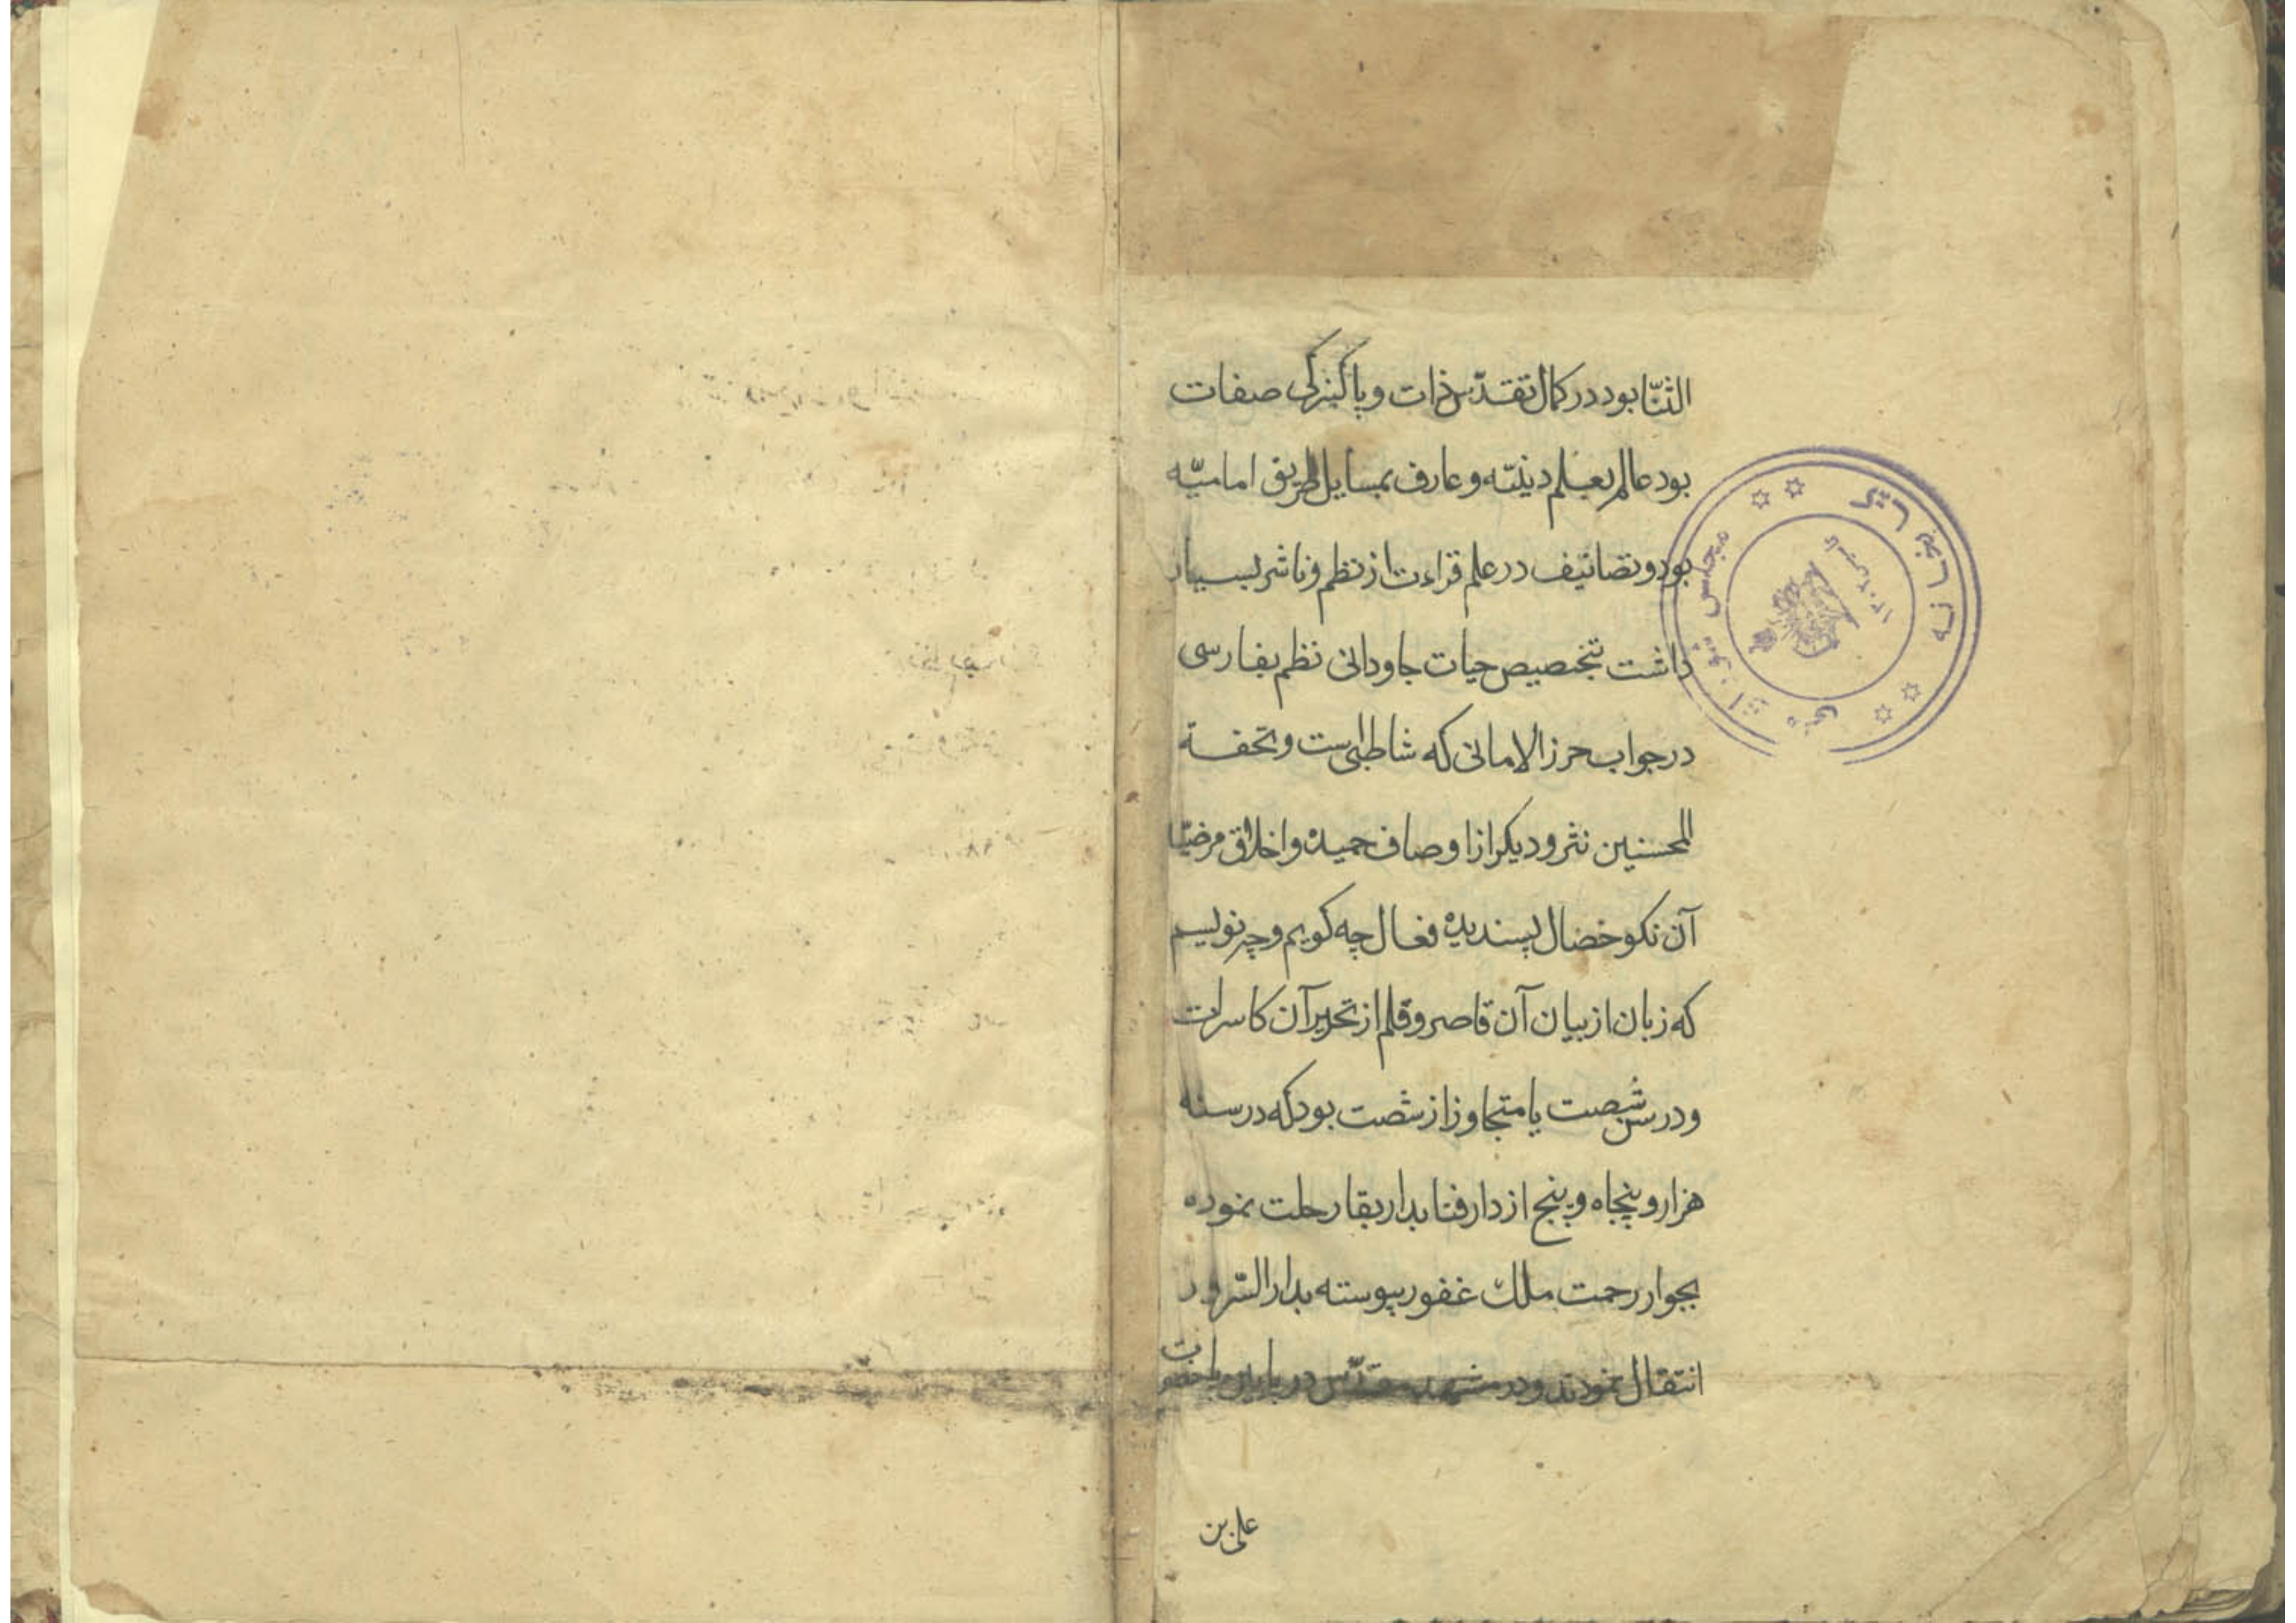 الثنّا بود در کمال تقدّس ذات و پاکیزکی صفات
بود عالم بعلم دینیّه و عارف بمسایل طریق امامیّه
بود و تصانیف در علم قراءت از نظم و ناثر بسیار
داشت بتخصیص حیات جاودانی نظم بفارسی
در جواب حرز الامانی که شاطبی است و تحفة
المحسنین نثر و دیکر از اوصاف حمیده و اخلاق مرضیّه
آن نکو خصال پسندیده فعال چه کویم و چه نویسم
که زبان از بیان آن قاصر و قلم از تحریر آن کاسر است
و در سن شصت یا متجاوز از شصت بود که در سنه
هزار و پنجاه و پنج از دار فنا بدار بقا رحلت نموده
بجوار رحمت ملک غفور پیوسته بدار السّرور
انتقال نمودند و در مشهد مقدّس در پایین پا حضرت
علی بن
کتابخانه مجلس شورای ملی
۱۳۰۲